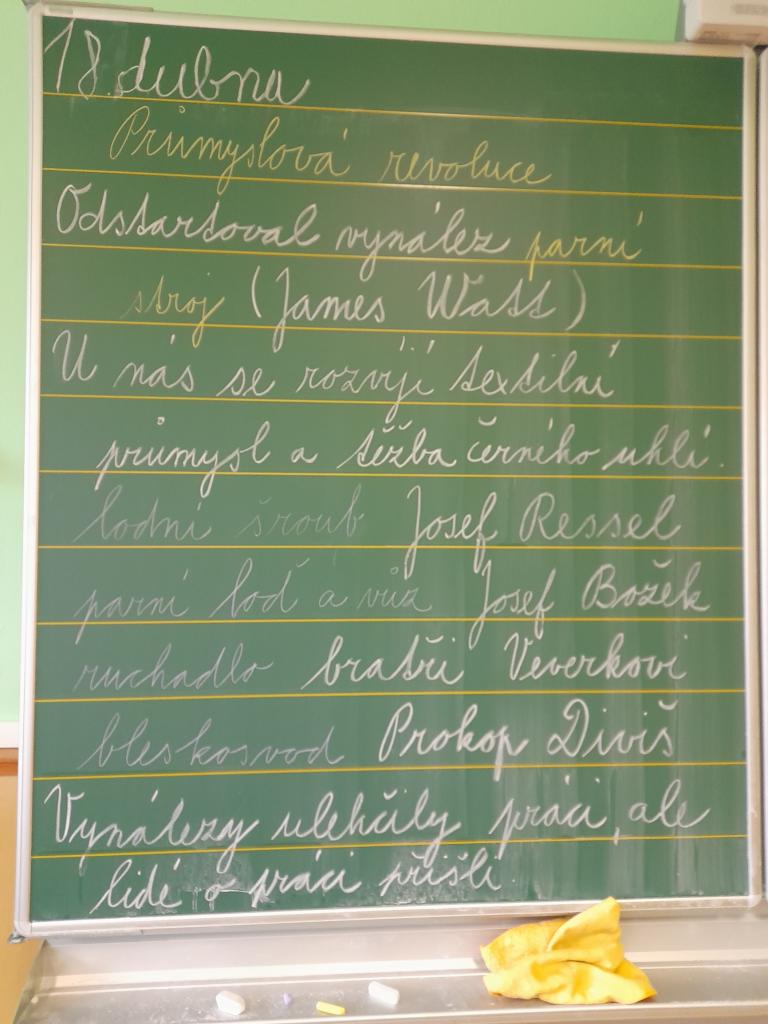 18. dubna
Průmyslová revoluce
Odstartoval vynález parní
stroj (James Watt)
U nás se rozvíjí textilní
průmysl a těžba černého uhlí.
lodní šroub Josef Ressel
parní loď a vůz Josef Božek
ruchadlo bratři Veverkovi
bleskosvod Prokop Diviš
Vynálezy ulehčily práci, ale
lidé o práci přišli.